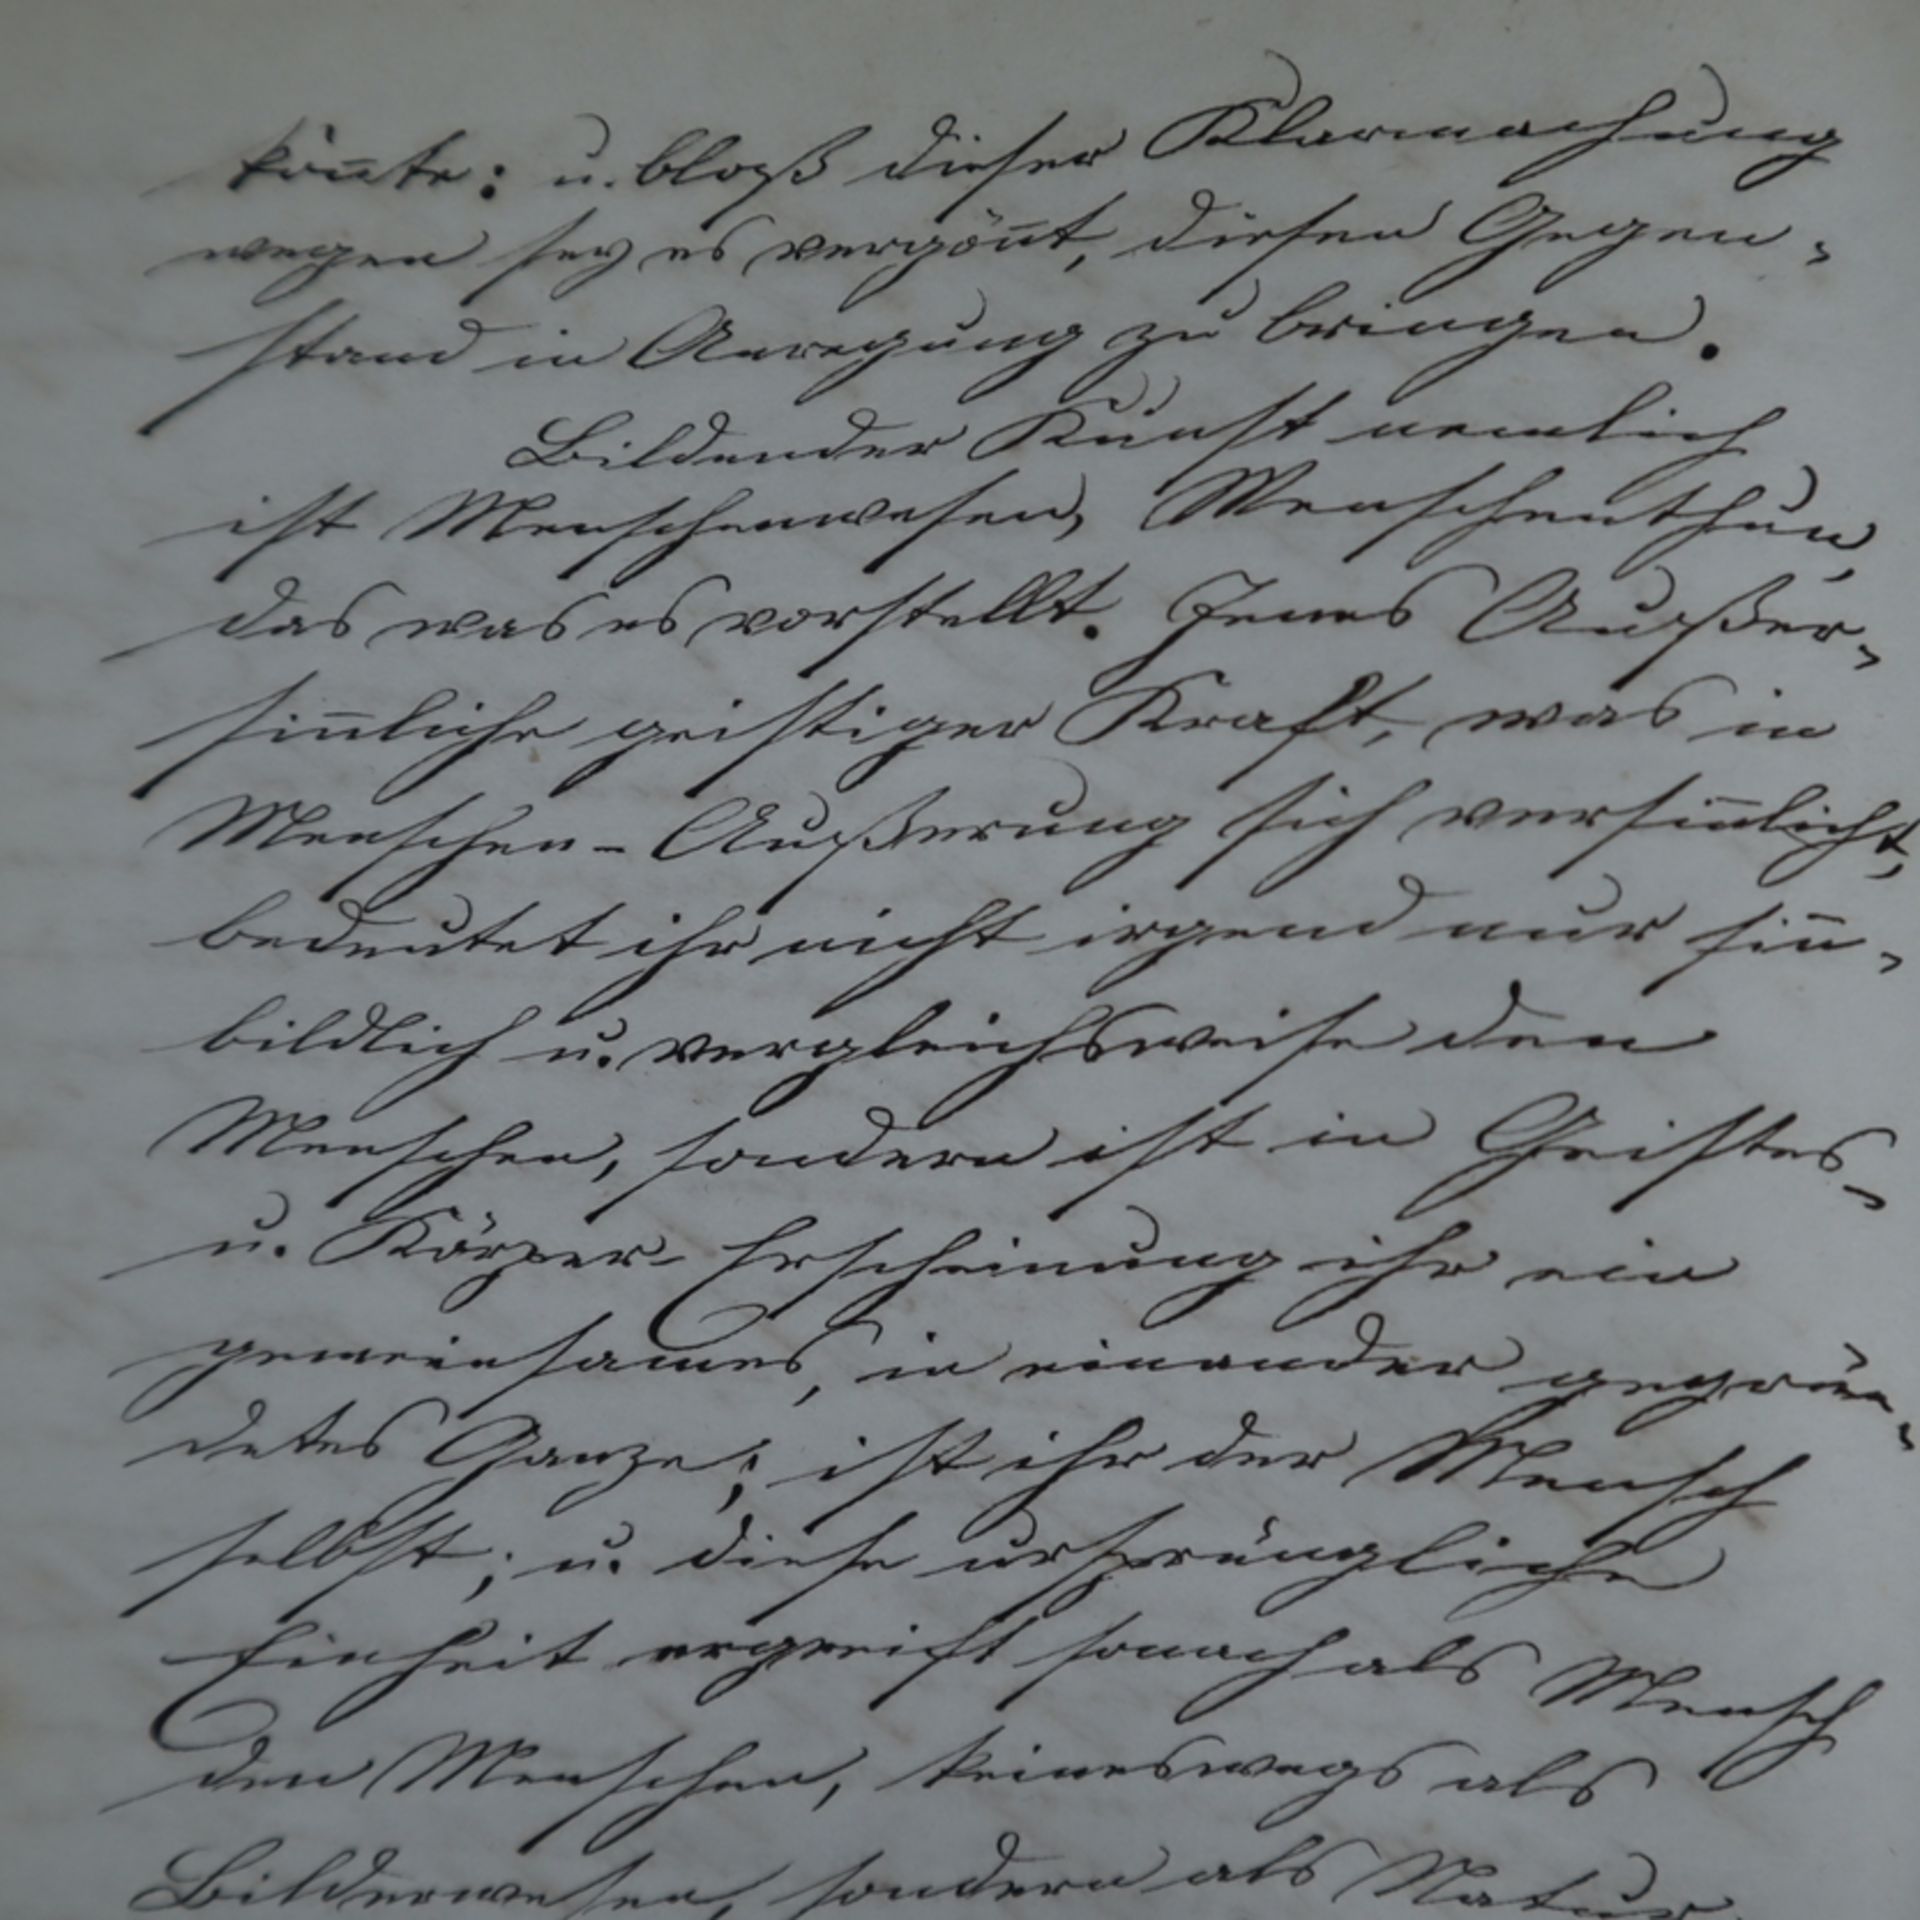 könnte: u. bloß dieser Klarmachung
wegen sey es vergönnt, diesen Gegen-
stand in Anregung zu bringen.
Bildender Kunst nemlich
ist Menschenwesen, Menschenthun,
das was es vorstellt. Jenes Außer-
sinnliche geistiger Kraft, was in
Menschen-Äußerung sich versinnlicht,
bedeutet ihr nicht irgend nur sinn-
bildlich u. vergleichsweise den
Menschen, sondern ist in Geistes-
u. Körper-Erscheinung ihr ein
gemeinsames, in einander gegrün-
detes Ganze; ist ihr der Mensch
selbst; u. diese ursprüngliche
Einheit ergreift sonach als Mensch
den Menschen, keineswegs als
Bilderwesen, sondern als Natur-